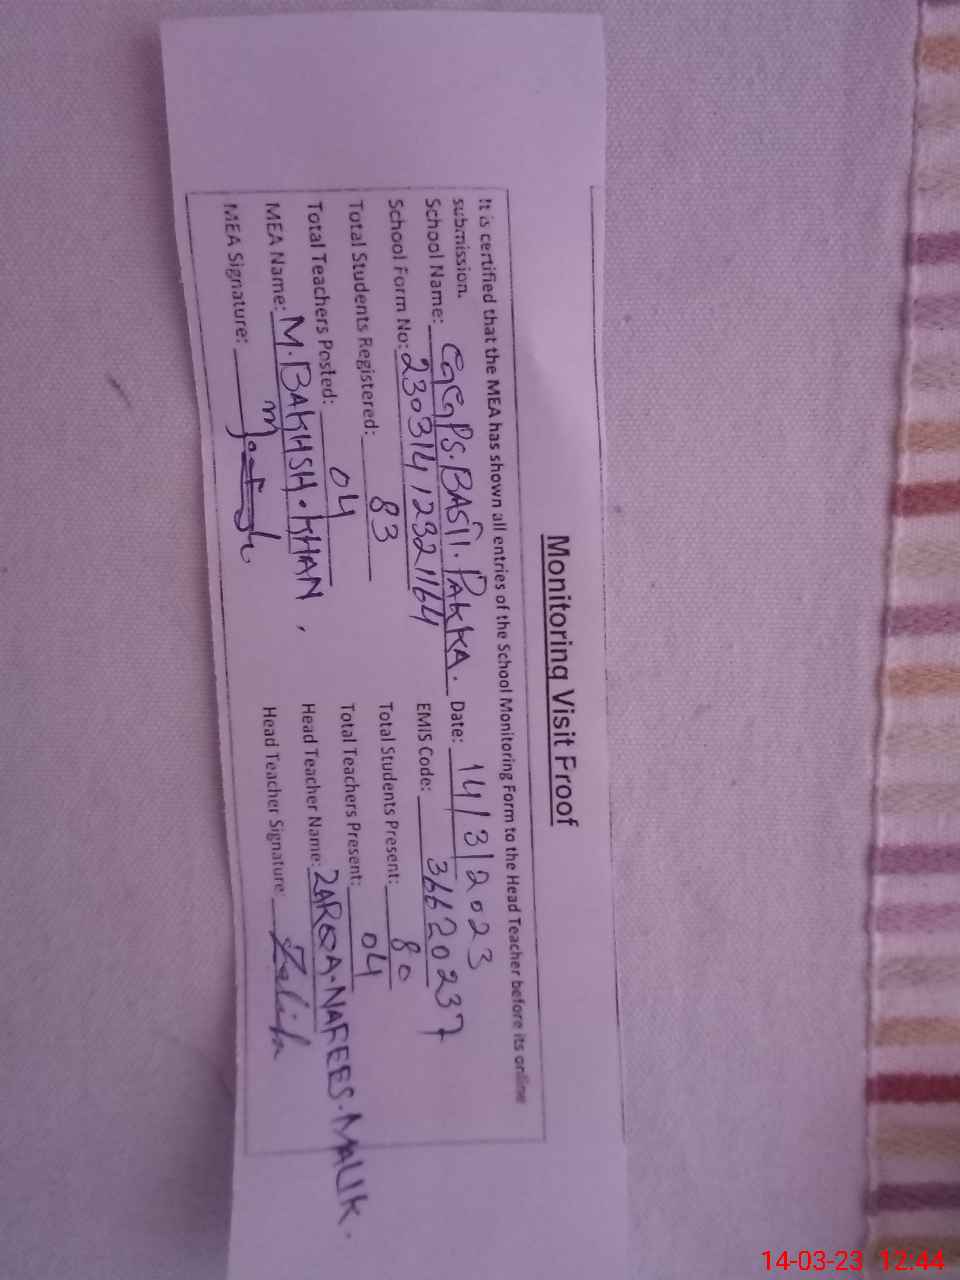 Monitoring Visit Froof
It is certified that the MEA has shown all entries of the School Monitoring Form to the Head Teacher before its online
submission.
School Name: GGPS.BASTI.PAKKA. Date: 14/3/2023
School Form No: 23031412321164 EMIS Code: 36620237
Total Students Registered: 83 Total Students Present: 80
Total Teachers Posted: 04 Total Teachers Present: 04
MEA Name: M.BAKHSH.KHAN, Head Teacher Name: ZARQA.NAFEES.MALIK.
MEA Signature: Head Teacher Signature:
14-03-23 12:44